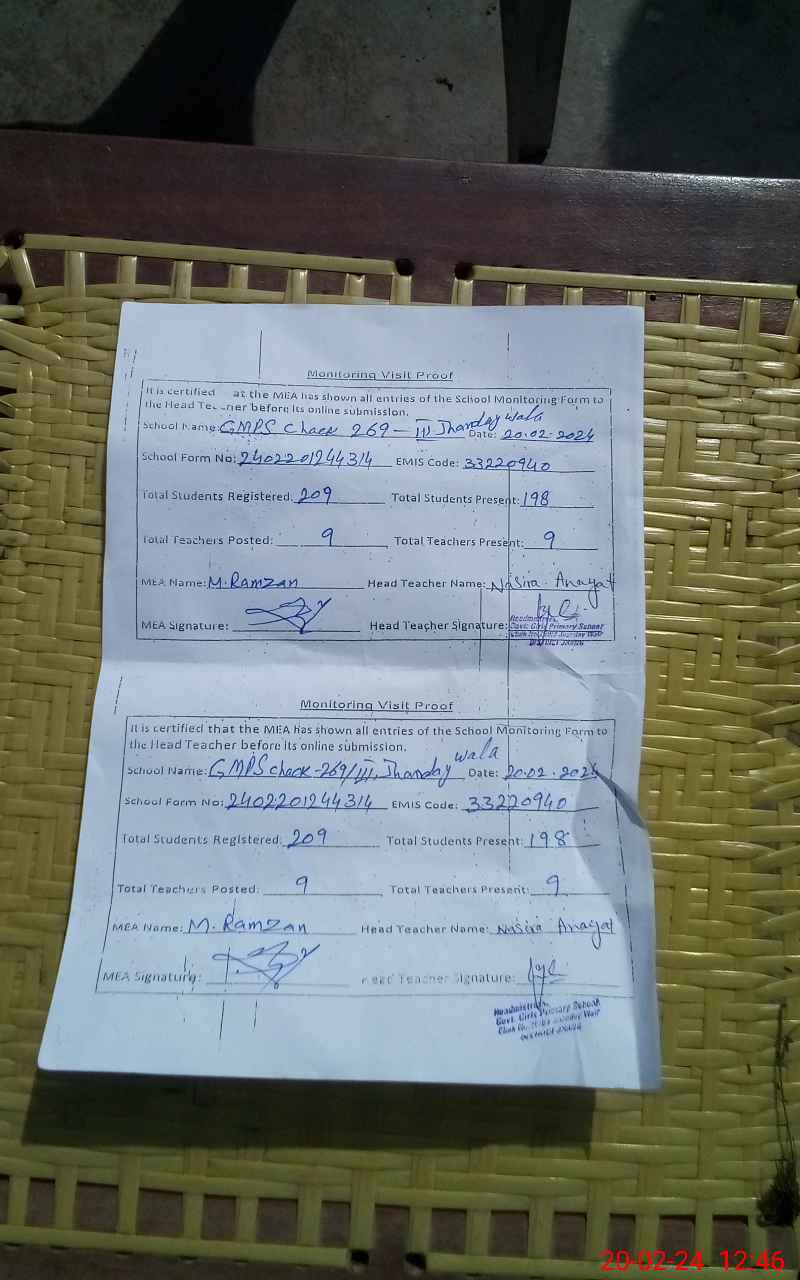 Monitoring Visit Proof
It is certified at the MEA has shown all entries of the School Monitoring Form to
the Head Teacher before its online submission.
School Name: GMPS Chack 269-III Jhanday wala Date: 20.02.2024
School Form No: 2402201244314 EMIS Code: 33220940
Total Students Registered: 209 Total Students Present: 198
Total Teachers Posted: 9 Total Teachers Present: 9
MEA Name: M.Ramzan Head Teacher Name: Nasira Anayat
MEA Signature: Head Teacher Signature:
Headmistress
Govt. Girls Primary School
Monitoring Visit Proof
It is certified that the MEA has shown all entries of the School Monitoring Form to
the Head Teacher before its online submission.
School Name: GMPS chack-269/III, Jhanday wala Date: 20.02.2024
School Form No: 2402201244314 EMIS Code: 33220940
Total Students Registered: 209 Total Students Present: 198
Total Teachers Posted: 9 Total Teachers Present: 9
MEA Name: M. Ramzan Head Teacher Name: Nasira Anayat
MEA Signature: Head Teacher Signature:
Headmistress
Govt. Girls Primary School
20-02-24 12:46